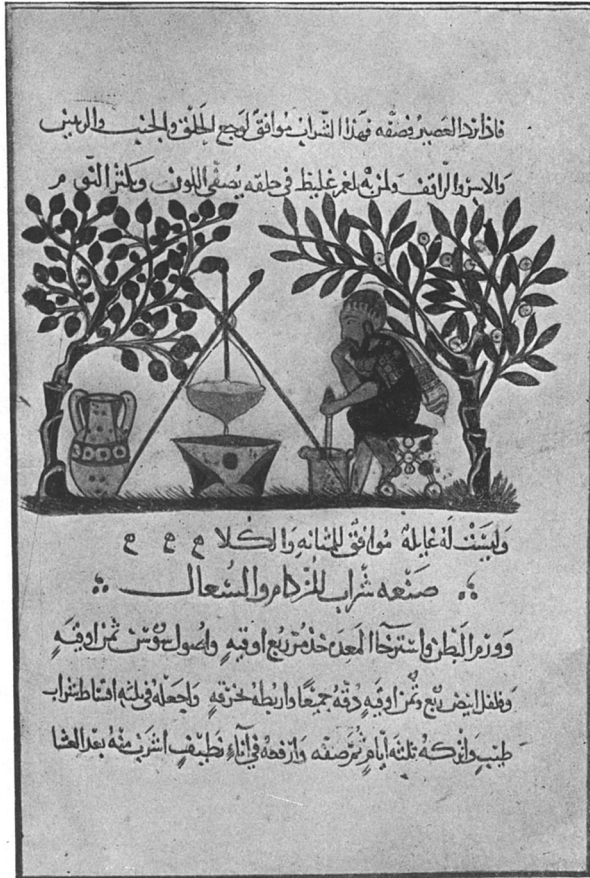 فاذا برد العصير فصفه فهذا الشراب موافق لوجع الحلق والجنب والريتين
والاسر والراقف ولمن به بلغم غليظ في حلقه يصفي اللون ويكثر النوم
وليست له غايلة موافق للمثانه والكلا
صنعه شراب للزكام والسعال
وورم البطن واسترخا المعده خذ مر ربع اوقيه واصول سوس ثمن اوقيه
وفلفل ابيض ربع وثمن اوقيه دقه جميعا واربطه بخرقه واجعله في ثلثه اقساط شراب
طيب واتركه ثلثه ايام ثم صفه وارفعه في اناء نظيف اشرب منه بعد العشا